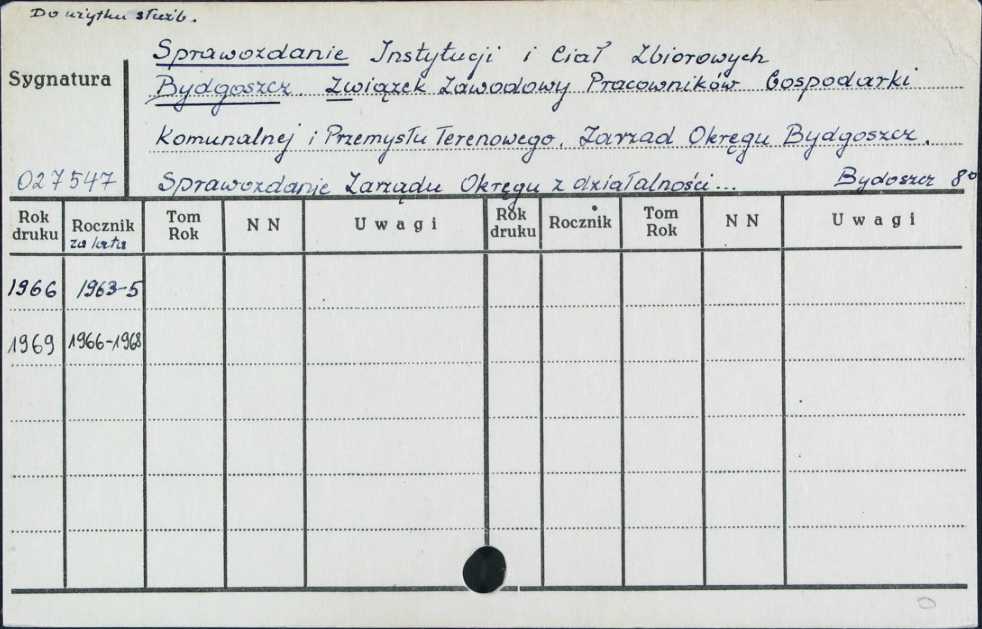 Do użytku służb.
Sprawozdanie Instytucji i Ciał Zbiorowych
Sygnatura
Bydgoszcz. Związek Zawodowy Pracowników Gospodarki
Komunalnej i Przemysłu Terenowego. Zarzad Okręgu Bydgoszcz.
027547 Sprawozdanie Zarządu Okręgu z działalności... Bydoszcz 8°
Rok druku Rocznik za lata Tom Rok N N Uwagi Rok druku Rocznik Tom Rok N N Uwagi
1966 1963-5
1969 1966-1968